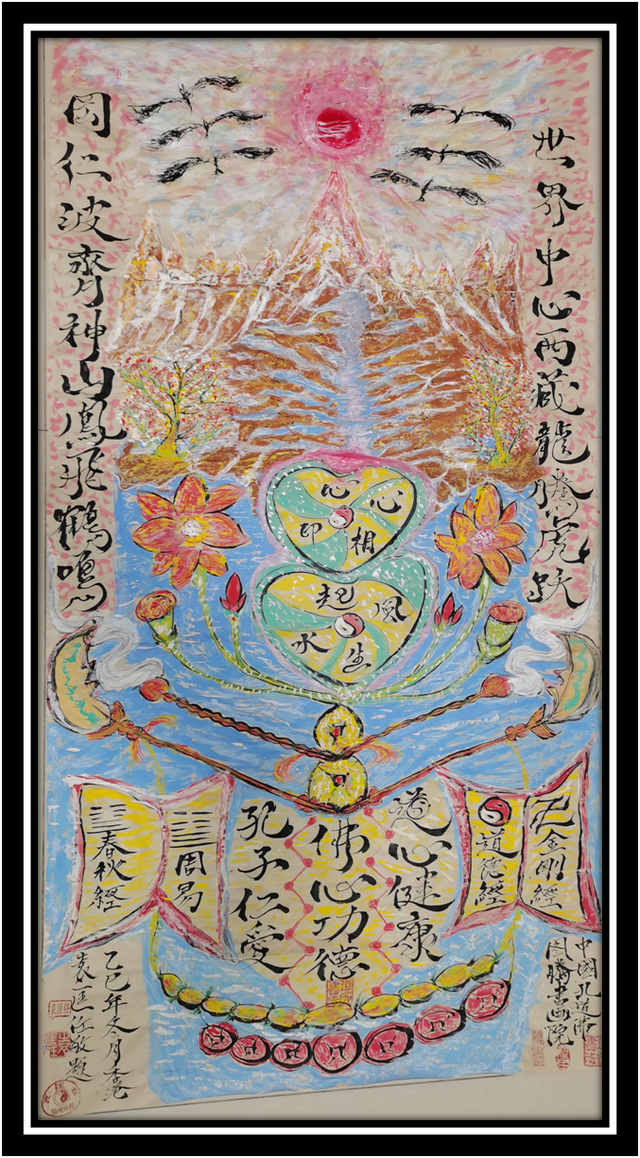 世界中心西藏龍腾虎跃
岡仁波齊神山鳳飛鶴鳴
心心相印
風生水起
卍金剛經
道德經
周易
春秋經
道心健康
佛心功德
孔子仁愛
中國孔道佛
图腾書画院
乙巳年冬月香港
袁匡敬題